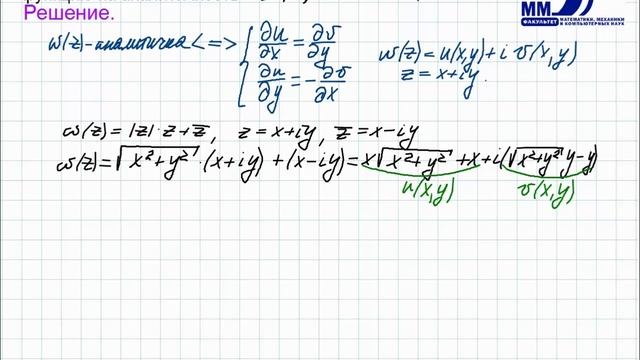 Решение.
ММ
ФАКУЛЬТЕТ
МАТЕМАТИКИ, МЕХАНИКИ
И КОМПЬЮТЕРНЫХ НАУК
ω(z)-аналитична <=> { ∂u/∂x = ∂v/∂y
∂u/∂y = -∂v/∂x
ω(z)=u(x,y)+i v(x,y)
z=x+iy.
ω(z)=|z|·z+z̅, z=x+iy, z̅=x-iy
ω(z)=√(x²+y²)·(x+iy)+(x-iy)=x√(x²+y²)+x+i(√(x²+y²)y-y)
u(x,y) v(x,y)